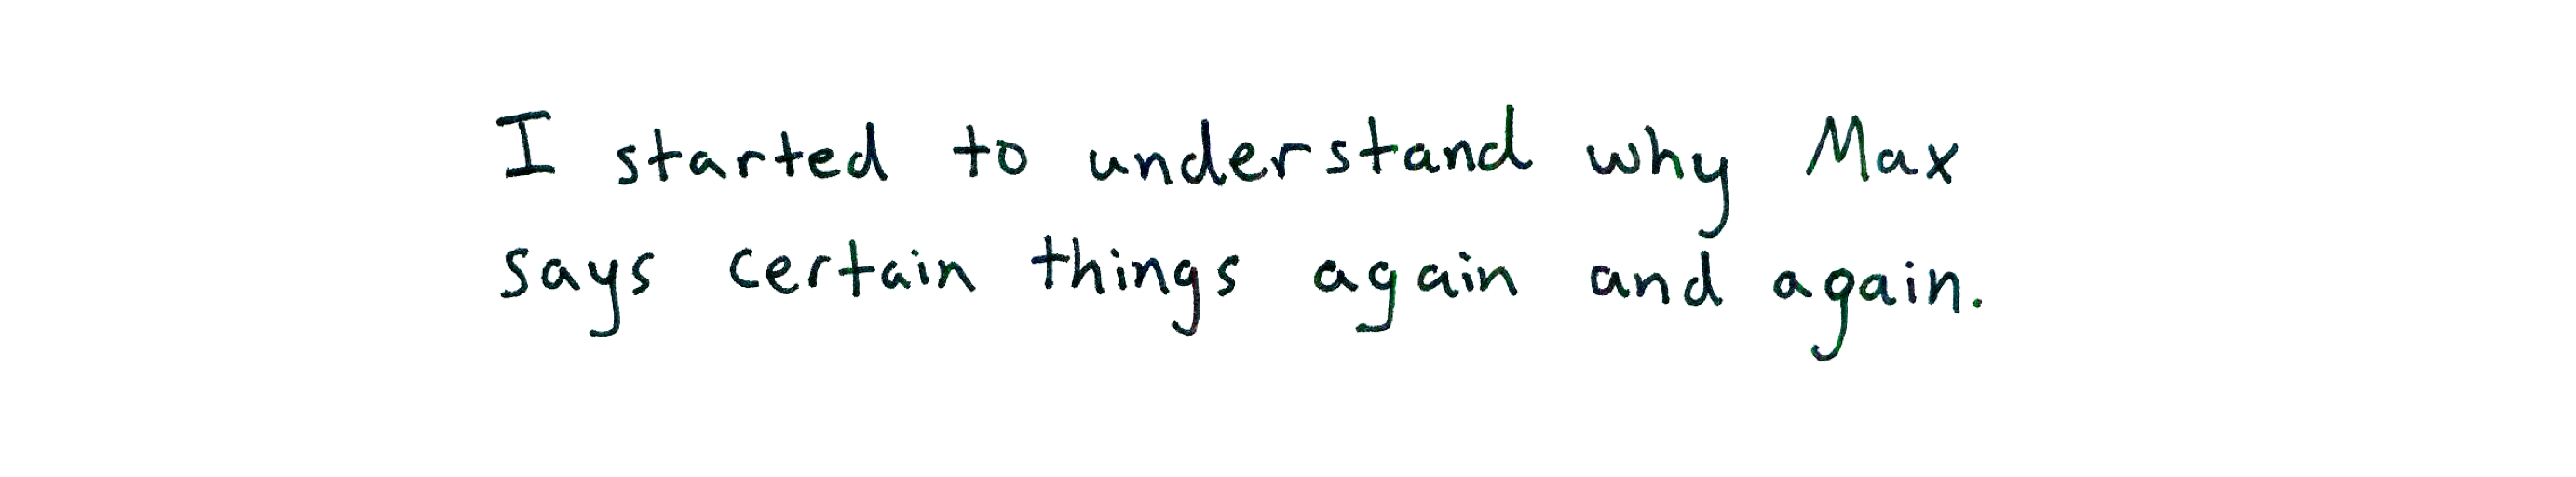 I started to understand why Max
says certain things again and again.